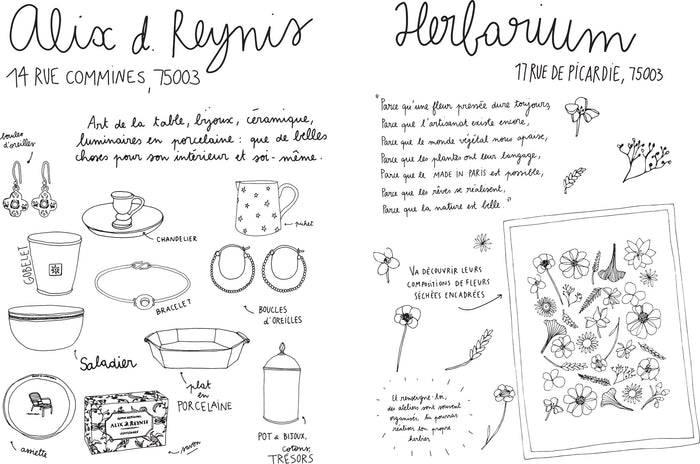 Alix d. Reynis
14 RUE COMMINES, 75003
Art de la table, bijoux, céramique,
luminaires en porcelaine : que de belles
choses pour son intérieur et soi-même.
boucles
d'oreilles
CHANDELIER
pichet
GOBELET
BRACELET
BOUCLES
d'OREILLES
Saladier
plat
en
PORCELAINE
assiette
ALIX D. REYNIS
savon
POT à BIJOUX,
cotons,
TRÉSORS
Herbarium
17 RUE DE PICARDIE, 75003
"Parce qu'une fleur pressée dure toujours,
Parce que l'artisanat existe encore,
Parce que le monde végétal nous apaise,
Parce que les plantes ont leur langage,
Parce que le MADE IN PARIS est possible,
Parce que les rêves se réalisent,
Parce que la nature est belle."
VA DÉCOUVRIR LEURS
COMPOSITIONS DE FLEURS
SÉCHÉES ENCADRÉES
Et renseigne-toi,
des ateliers sont souvent
organisés, tu pourras
réaliser ton propre
herbier